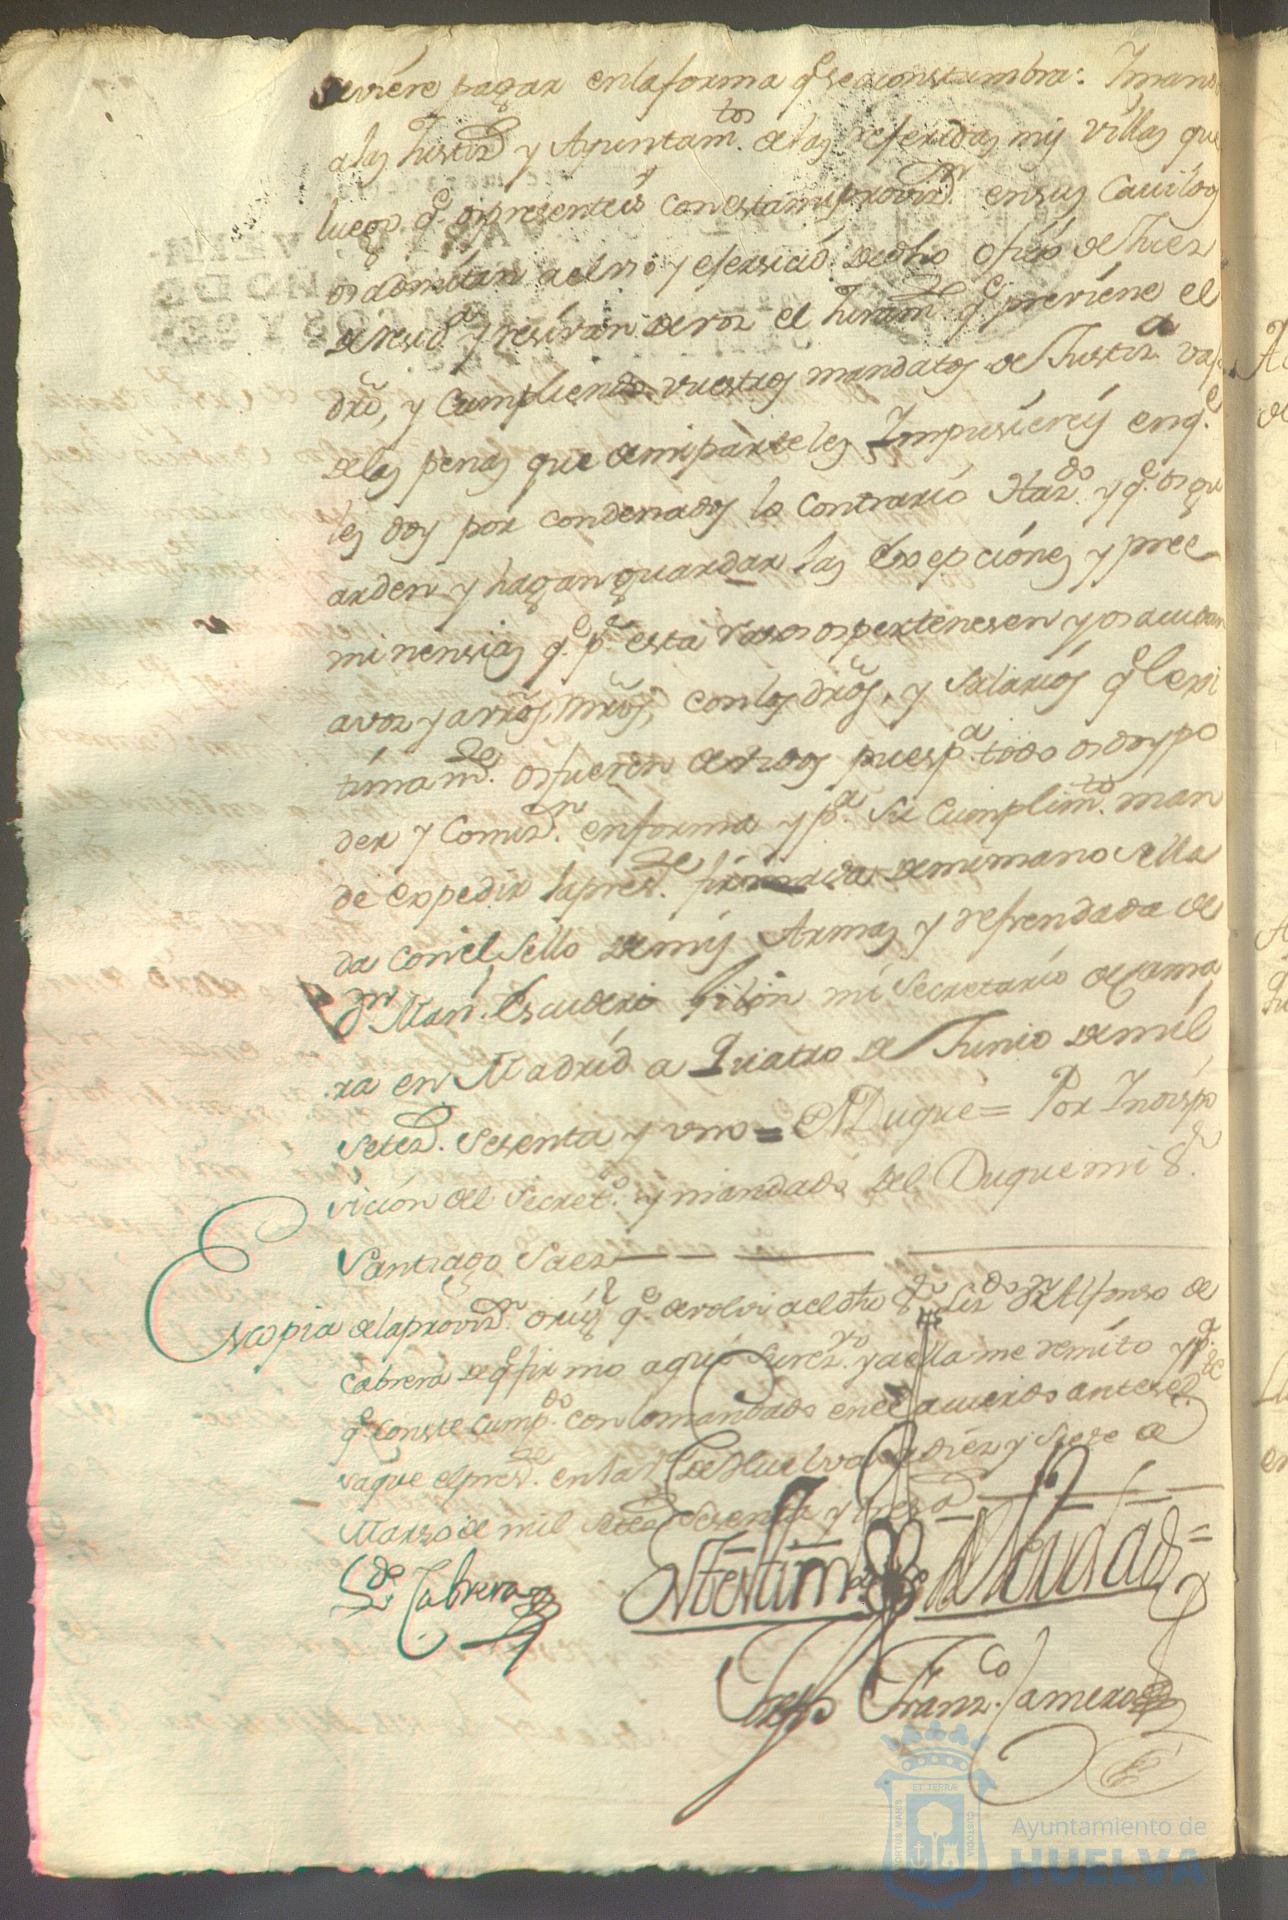 deviere pagar en la forma q.e se acostumbra: Y mando
a las Justiz.s y Ayuntam.tos de las referidas mis villas que
luego q.e os presenteis con esta mi proviz.n en sus Cavildos
os admitan a el uso y exersicio de dho ofizio de Juez
de resid.a y resivan de vos el Juram.to q.e previene el
dro, y Cumpliendo vuestros mandatos de Justiz.a vajo
de las penas que de mi parte les Impusiereis en q.e
les doy por condenados lo contrario Haz.do y q.e os gu
arden y hagan guardar las Excepciones y pree
minensias q.e p.r esta razon os pertenesen y os acudan
a vos y a vros mros, con los dros, y Salarios q.e lexi
timam.te os fueren devidos pues p.a todo os doy po
der y Comiz.n en forma y p.a su Cumplim.to man
de expedir la pres.te firmada de mi mano sella
da con el Sello de mis Armas y refrendada de
D.n Man.l Escudero Gilón mi Secretario de Cama
ra en Madrid a Quatro de Junio de mil
setez.s sesenta y uno = El Duque = Por Indispo
sición del Secret.o y mandado del Duque mi S.r
Santiago Saez
Es copia de la proviz.n orig.l q.e devolvi a el dho S.r Liz.do D.n Alfonso de
Cabrera de q.e firmó aqui su rez.vo y a ella me remito y p.a
q.e conste cump.do con lo mandado en el acuerdo antese.te
saque el pres.te en la v.a de Huelva a diez y siete de
Marzo de mil setez.s sesenta y tres a.s
L.do Cabrera
En testim.o de Verdad =
Franz.co Jamero
Ayuntamiento de
HUELVA
PORTUS MARIS
ET TERRÆ
CUSTODIA